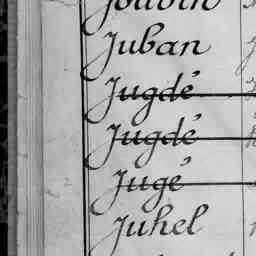 Joubin
Juban
Jugdé
Jugdé
Jugé
Juhel